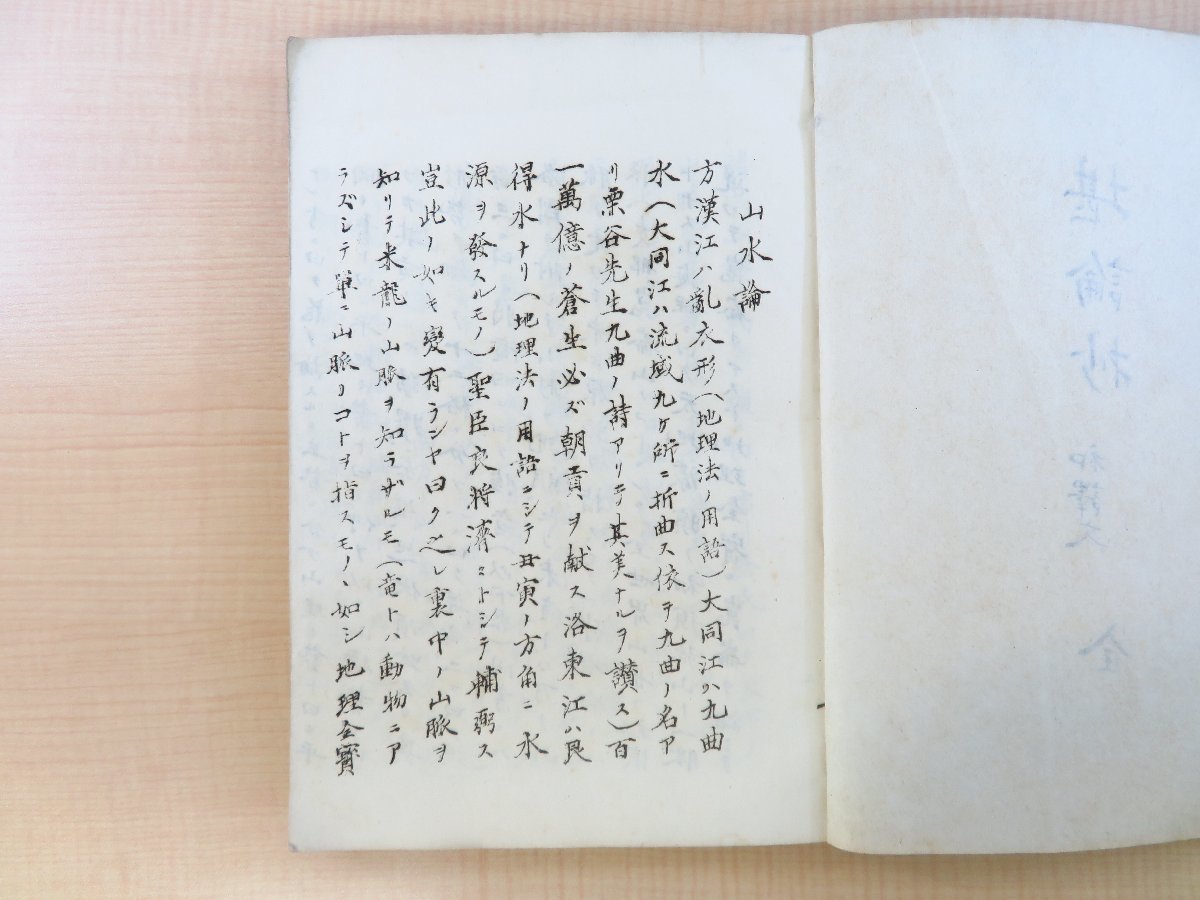 山水論
方漢江ハ亂衣形(地理法ノ用語)大同江ハ九曲
水(大同江ハ流域九ケ所ニ折曲ス依テ九曲ノ名ア
リ栗谷先生九曲ノ詩アリテ其美ナルヲ讃ス)百
一萬億ノ蒼生必ズ朝貢ヲ献ス洛東江ハ艮
得水ナリ(地理法ノ用語ニシテ丑寅ノ方角ニ水
源ヲ發スルモノ)聖臣良將濟ニトシテ輔弼ス
豈此ノ如キ變有ランヤ曰ク之レ裏中ノ山脈ヲ
知リテ米龍ノ山脈ヲ知ラザルモ(竜トハ動物ニア
ラズシテ單ニ山脈ノコトヲ指スモノヽ如シ地理全寶